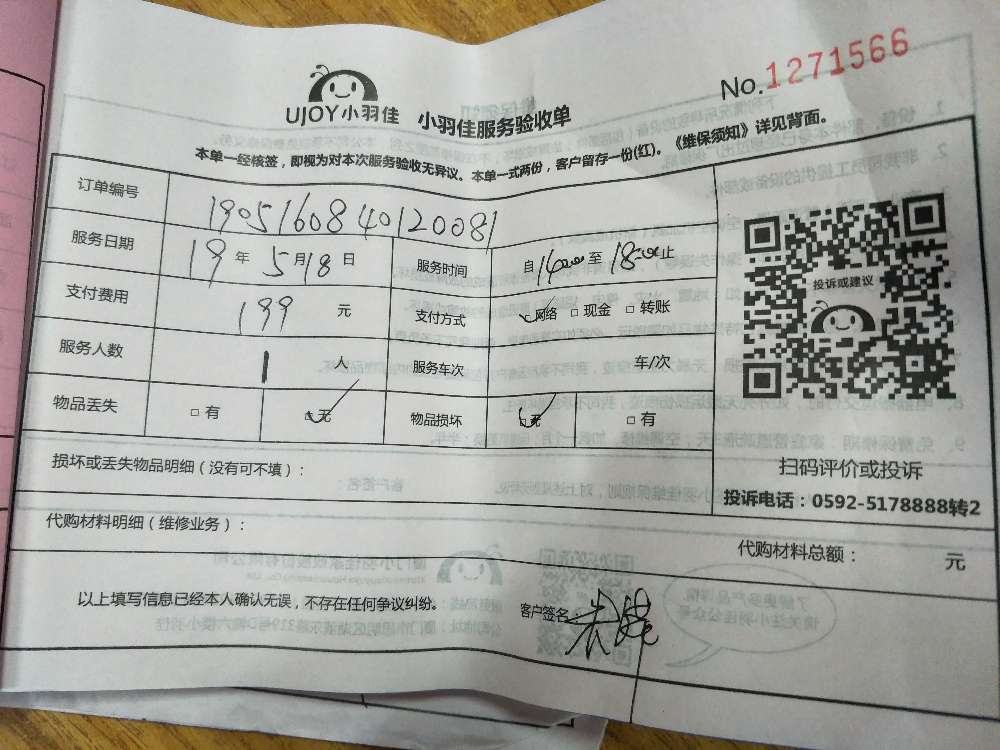 No.1271566
UJOY小羽佳 小羽佳服务验收单
本单一经核签，即视为对本次服务验收无异议。本单一式两份，客户留存一份(红)。《维保须知》详见背面。
订单编号 1905160840120081
服务日期 19年5月18日 服务时间 自16:00至18:00止
支付费用 199元 支付方式 网络 □现金 □转账
服务人数 1人 服务车次 车/次
物品丢失 □有 □无 物品损坏 □无 □有
投诉或建议
扫码评价或投诉
投诉电话：0592-5178888转2
损坏或丢失物品明细（没有可不填）：
代购材料明细（维修业务）：
代购材料总额： 元
以上填写信息已经本人确认无误，不存在任何争议纠纷。 客户签名：